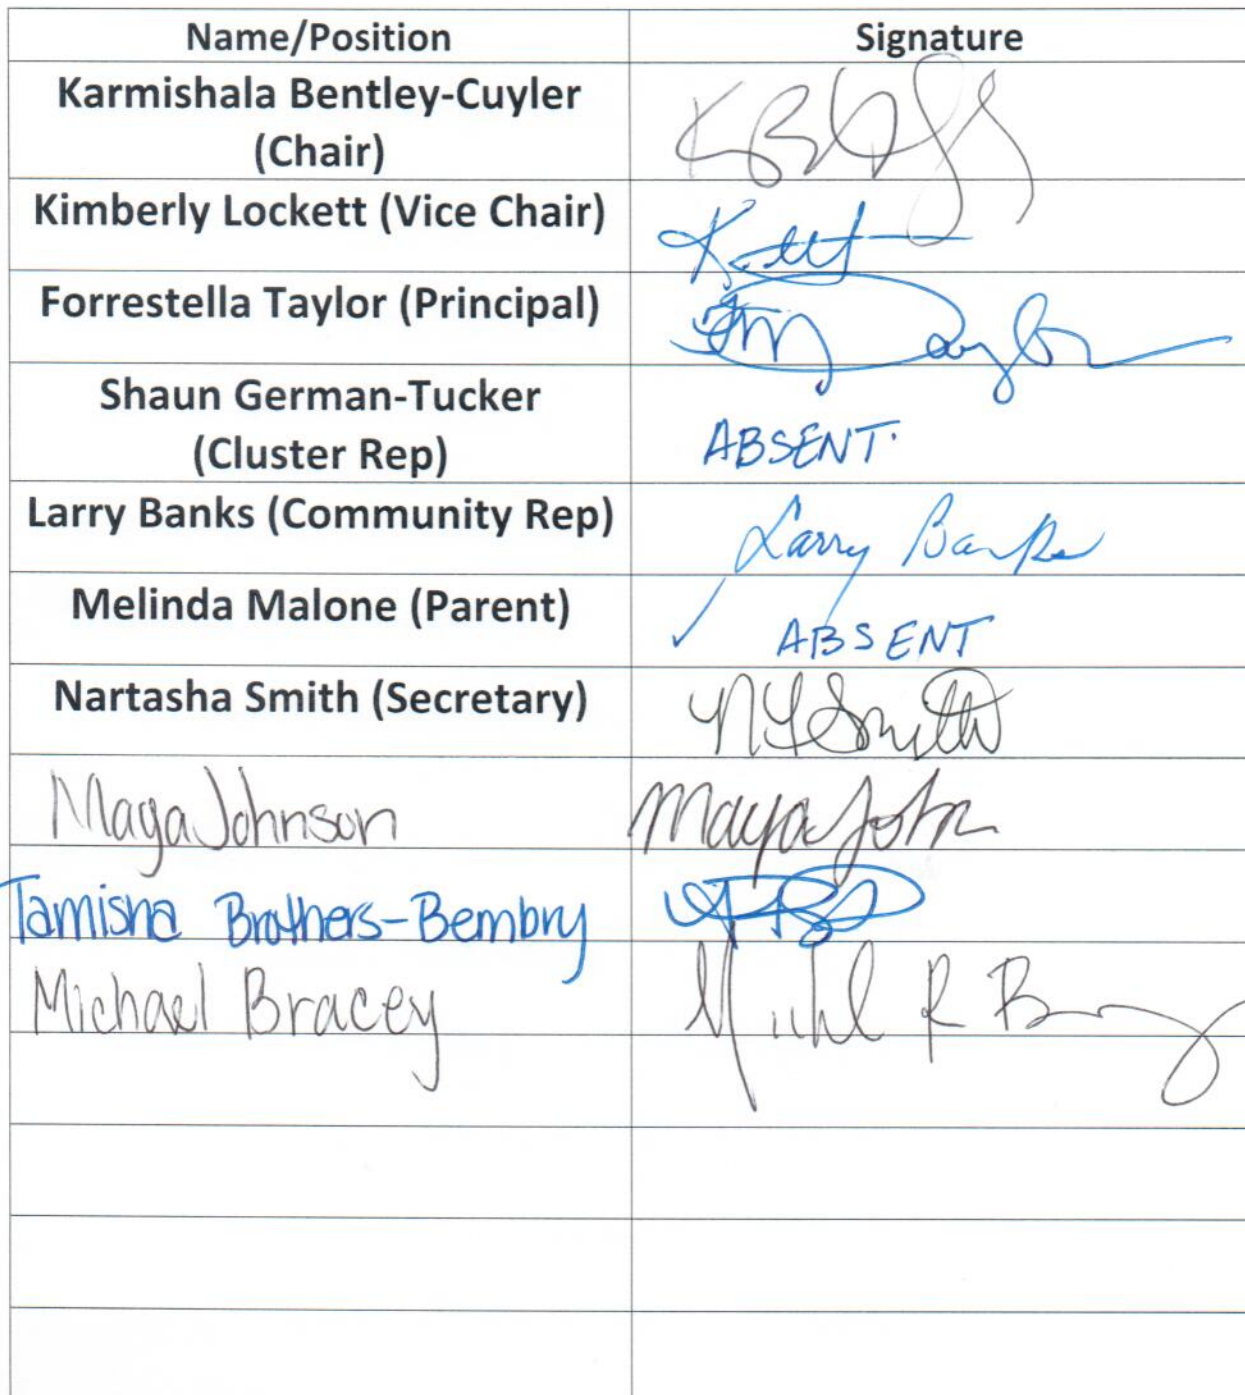 Name/Position Signature
Karmishala Bentley-Cuyler
(Chair)
Kimberly Lockett (Vice Chair)
Forrestella Taylor (Principal)
Shaun German-Tucker
(Cluster Rep) ABSENT.
Larry Banks (Community Rep) Larry Banks
Melinda Malone (Parent) ABSENT
Nartasha Smith (Secretary) Smith
Maya Johnson Maya
Tamisha Brothers-Bembry
Michael Bracey R